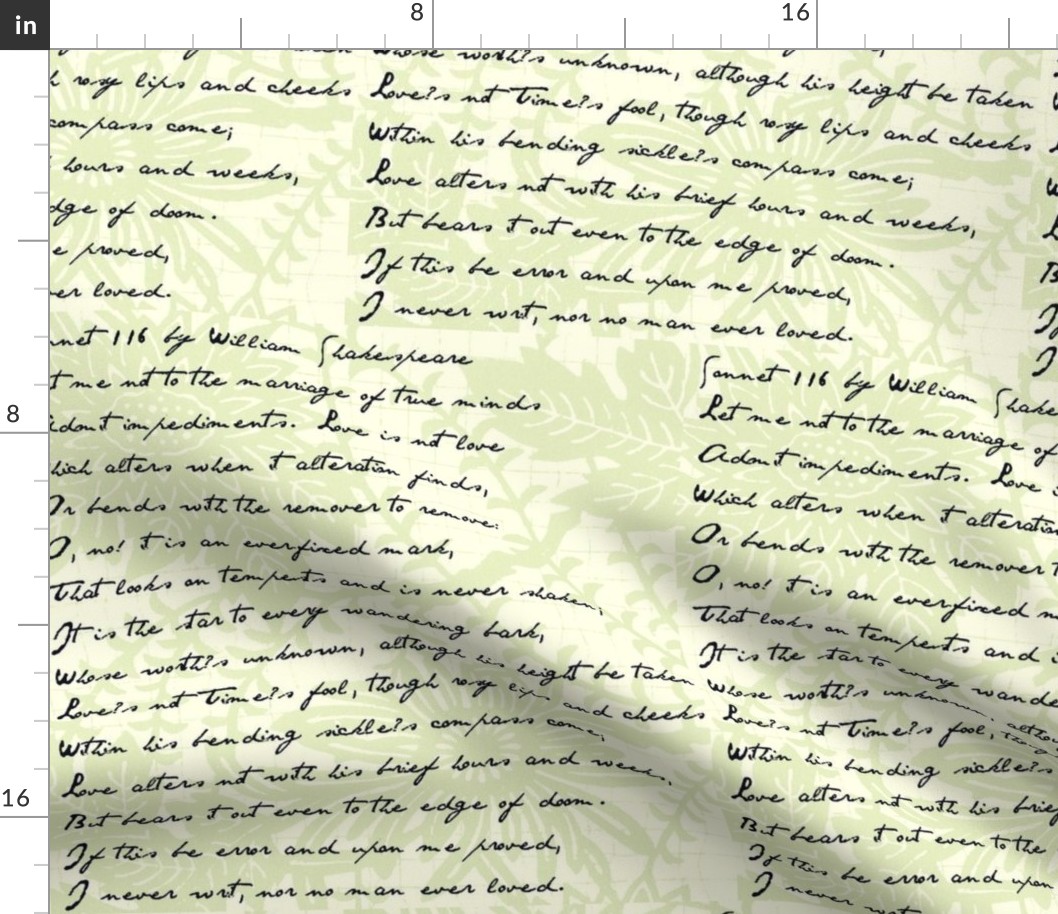 in
8
16
8
16
Whose worth?s unknown, although his height be taken
Love?s not Time?s fool, though rosy lips and cheeks
Within his bending sickle?s compass come;
Love alters not with his brief hours and weeks,
But bears it out even to the edge of doom.
If this be error and upon me proved,
I never writ, nor no man ever loved.
rosy lips and cheeks
compass come;
hours and weeks,
dge of doom.
e proved,
ver loved.
nnet 116 by William Shakespeare
t me not to the marriage of true minds
Admit impediments. Love is not love
hich alters when it alteration finds,
Or bends with the remover to remove:
O, no! it is an everfixed mark,
That looks on tempests and is never shaken;
It is the star to every wandering bark,
Whose worth?s unknown, although his height be taken
Love?s not Time?s fool, though rosy lips and cheeks
Within his bending sickle?s compass come;
Love alters not with his brief hours and weeks,
But bears it out even to the edge of doom.
If this be error and upon me proved,
I never writ, nor no man ever loved.
Sonnet 116 by William Shake
Let me not to the marriage of
Admit impediments. Love i
Which alters when it alteration
Or bends with the remover t
O, no! it is an everfixed m
That looks on tempests and i
It is the star to every wande
Whose worth?s unknown, althou
Love?s not Time?s fool, thoug
Within his bending sickle?s
Love alters not with his brief
But bears it out even to the
If this be error and upon
I never writ